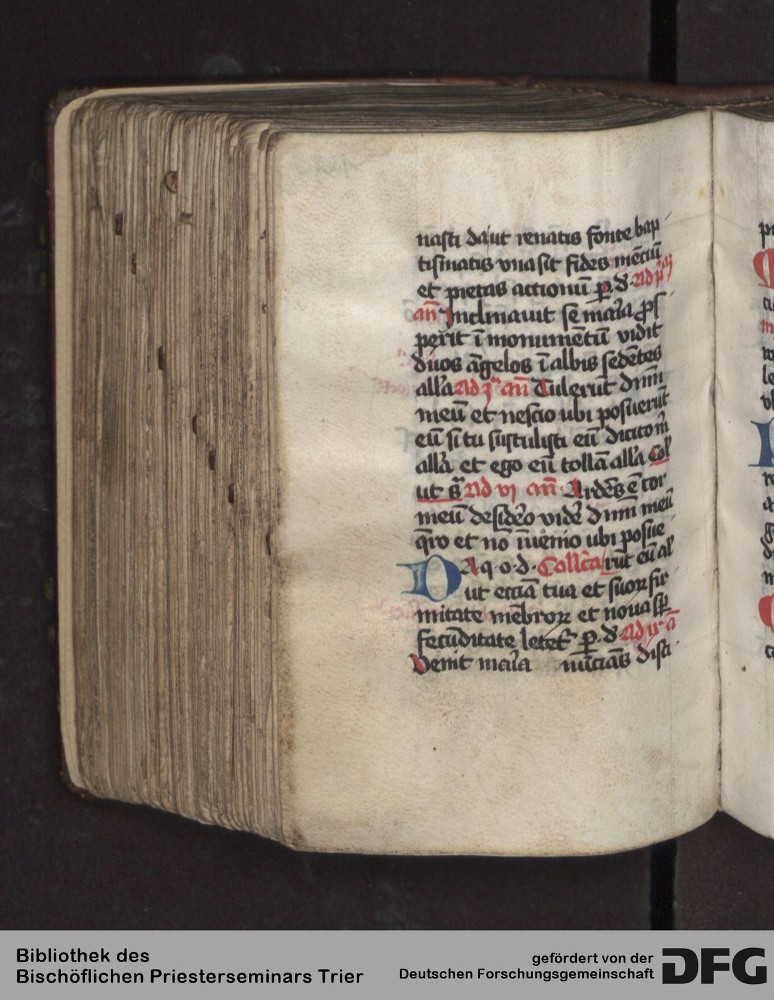 nasti da ut renatis fonte bap
tismatis vna sit fides mētiū
et pietas actionū p̱ d. ad
an̄ Inclinauit se maīa ꝓs
perit ī monumētū vidit
duos āgelos ī albis sedētes
all'a ad an̄ Tulerūt dnm̄
meū et nescio ubi posuerūt
eū si tu sustulisti eū dicito m̄
all'a et ego eū tollā all'a Col'
ut sᷓ Ad vj an̄. Ardēs ē cor
meū desidero vidē dnm̄ meū
q̄ro et nō īuenio ubi posue
A q o. d. Collc̄a rūt eū al'
D ut eccīa tua et suoꝝ fir
mitate mēbroꝝ et noua sp̄
fecūditate letet᷑ p̱ d
Venit maīa nūciās disci
Bibliothek des
Bischöflichen Priesterseminars Trier
gefördert von der
Deutschen Forschungsgemeinschaft
DFG